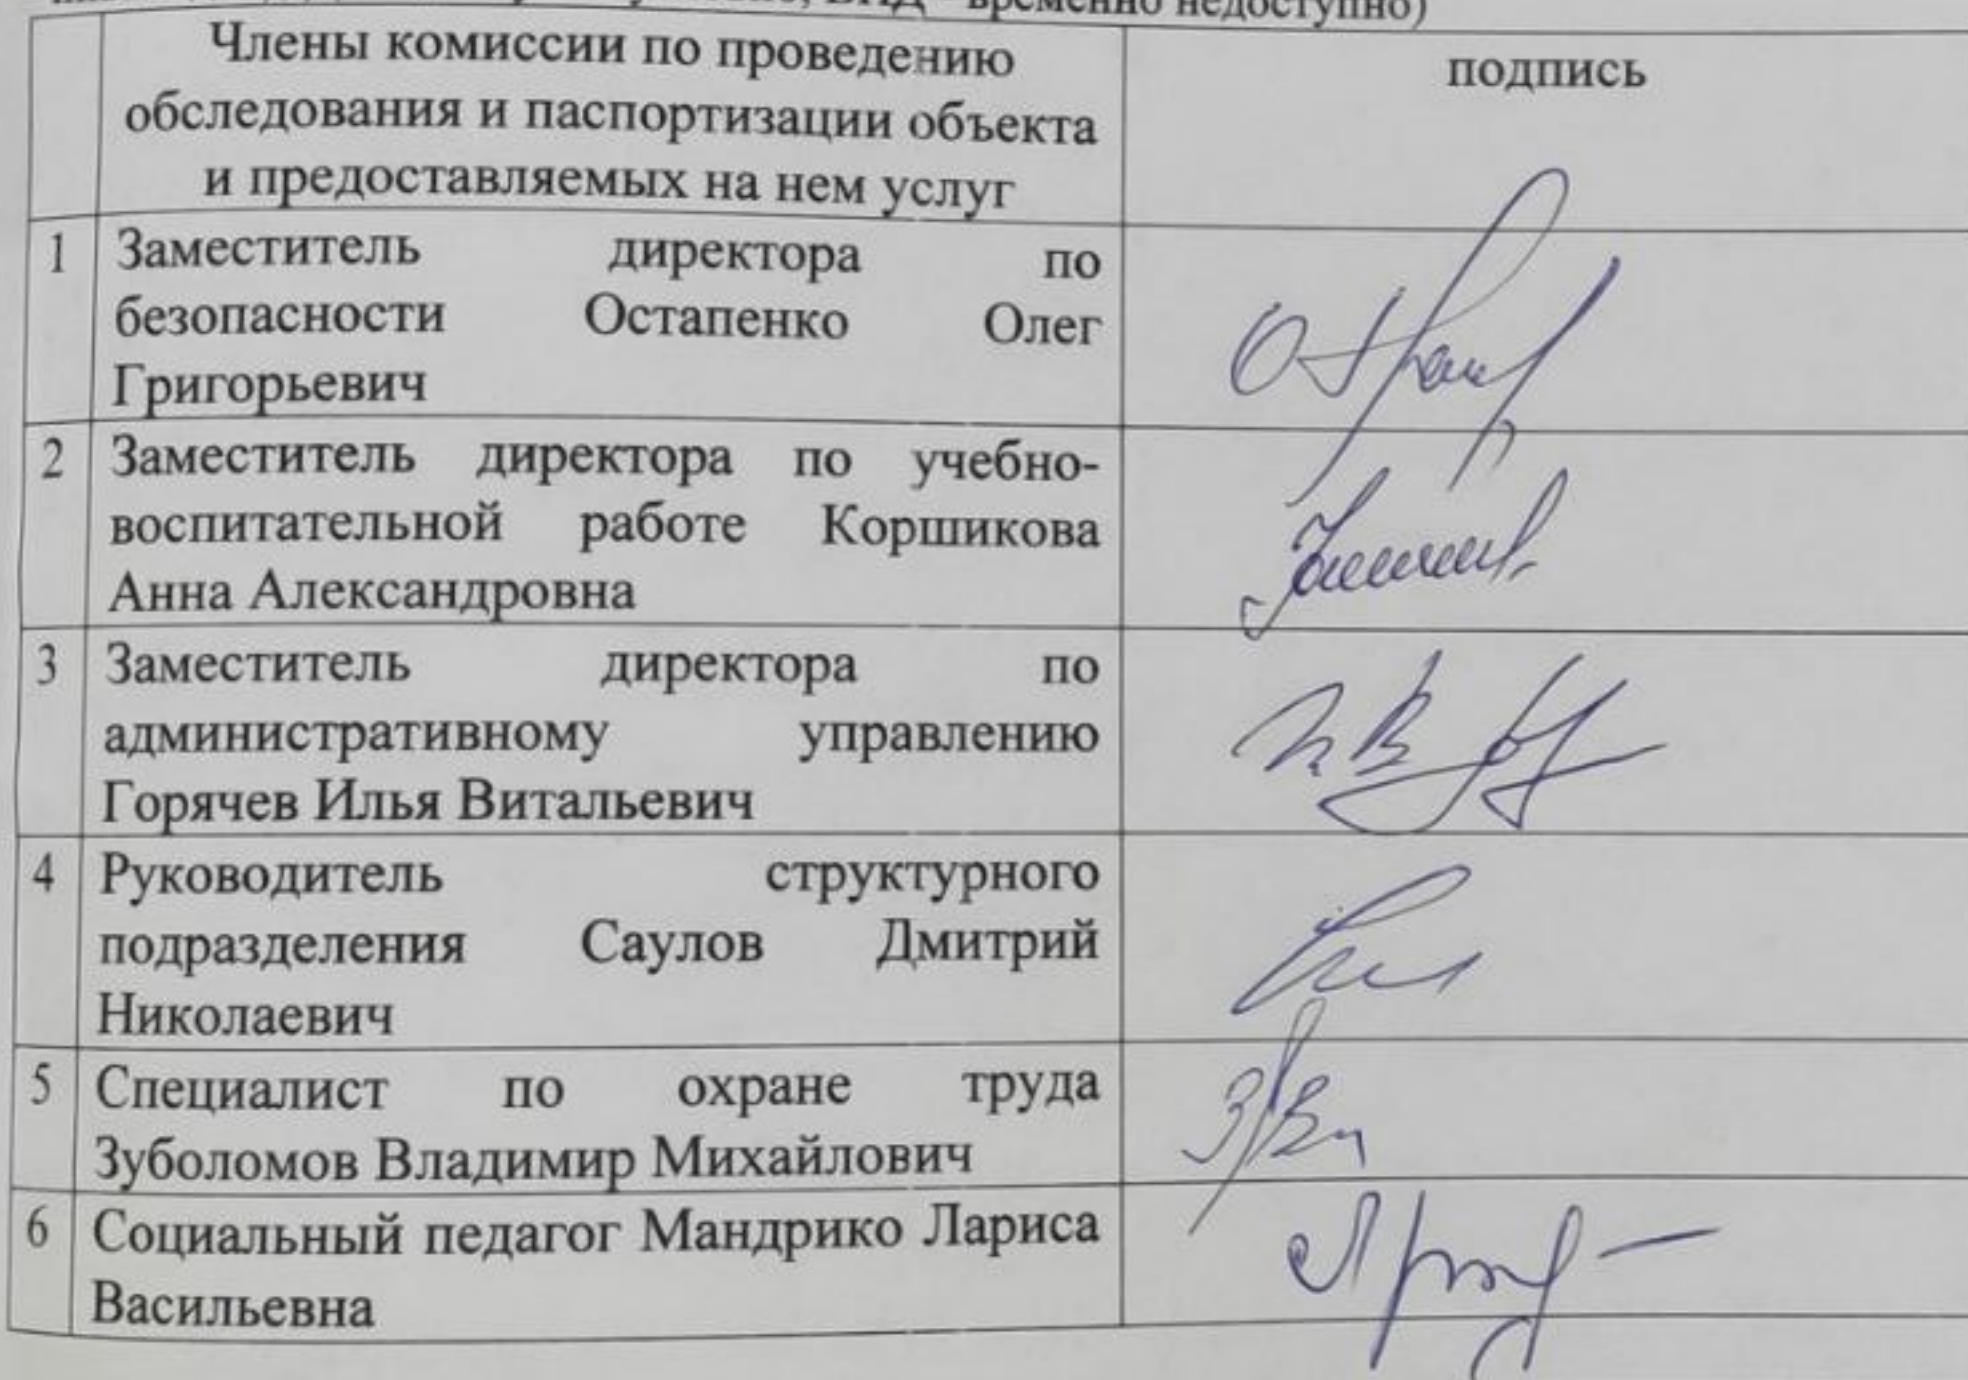 временно недоступно)
Члены комиссии по проведению
обследования и паспортизации объекта
и предоставляемых на нем услуг
подпись
1 Заместитель директора по
безопасности Остапенко Олег
Григорьевич
2 Заместитель директора по учебно-
воспитательной работе Коршикова
Анна Александровна
3 Заместитель директора по
административному управлению
Горячев Илья Витальевич
4 Руководитель структурного
подразделения Саулов Дмитрий
Николаевич
5 Специалист по охране труда
Зуболомов Владимир Михайлович
6 Социальный педагог Мандрико Лариса
Васильевна